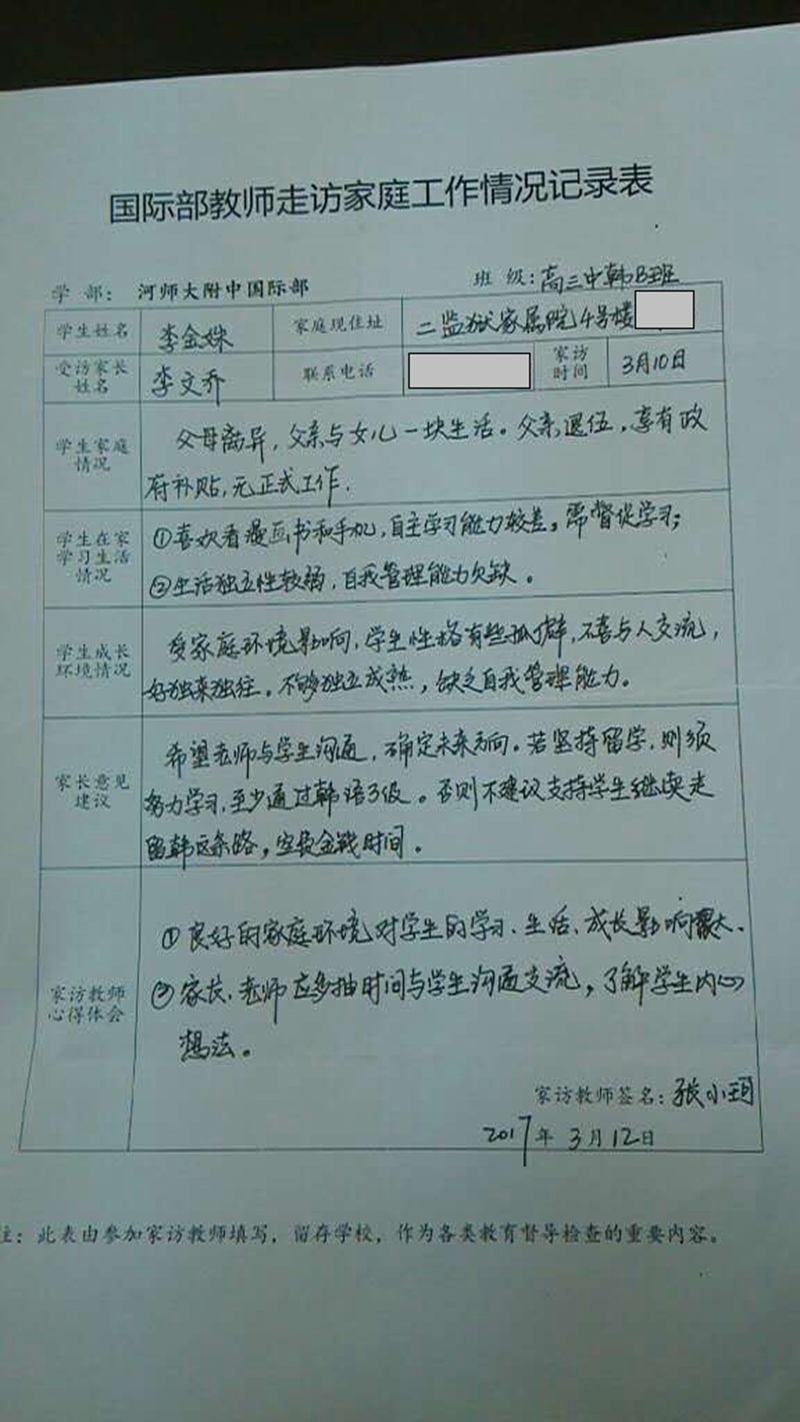 国际部教师走访家庭工作情况记录表
学 部: 河师大附中国际部 班 级: 高三中韩B班
学生姓名 李金姝 家庭现住址 二监狱家属院4号楼
受访家长姓名 李文乔 联系电话 家访时间 3月10日
学生家庭情况
父母离异,父亲与女儿一块生活。父亲退伍,享有政
府补贴,无正式工作.
学生在家学习生活情况
①喜欢看漫画书和手机,自主学习能力较差,需督促学习;
②生活独立性较弱,自我管理能力欠缺。
学生成长环境情况
受家庭环境影响,学生性格有些孤僻,不喜与人交流,
好独来独往。不够独立成熟,缺乏自我管理能力。
家长意见建议
希望老师与学生沟通,确定未来方向。若坚持留学,则须
努力学习,至少通过韩语3级。否则不建议支持学生继续走
留韩这条路,空费金钱时间。
家访教师心得体会
①良好的家庭环境对学生的学习、生活、成长影响很大.
②家长、老师应多抽时间与学生沟通交流,了解学生内心
想法。
家访教师签名: 张小珂
2017年 3月12日
注: 此表由参加家访教师填写, 留存学校, 作为各类教育督导检查的重要内容。